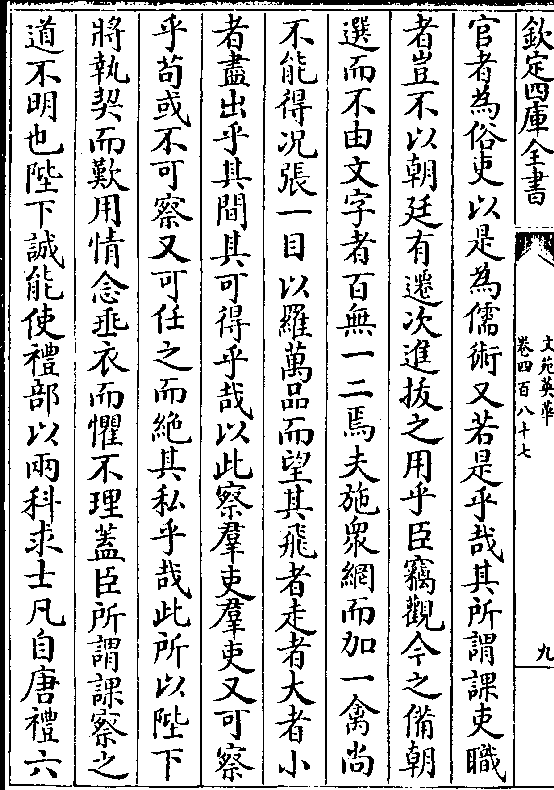 欽定四庫全書
文苑英華
卷四百八十七
九
官者為俗吏以是為儒術又若是乎哉其所謂課吏職
者豈不以朝廷有遷次進拔之用乎臣竊觀今之備朝
選而不由文字者百無一二焉夫施衆網而加一禽尚
不能得况張一目以羅萬品而望其飛者走者大者小
者盡出乎其間其可得乎哉以此察羣吏羣吏又可察
乎苟或不可察又可任之而絶其私乎哉此所以陛下
將執契而歎用情念垂衣而懼不理葢臣所謂課察之
道不明也陛下誠能使禮部以兩科求士凡自唐禮六